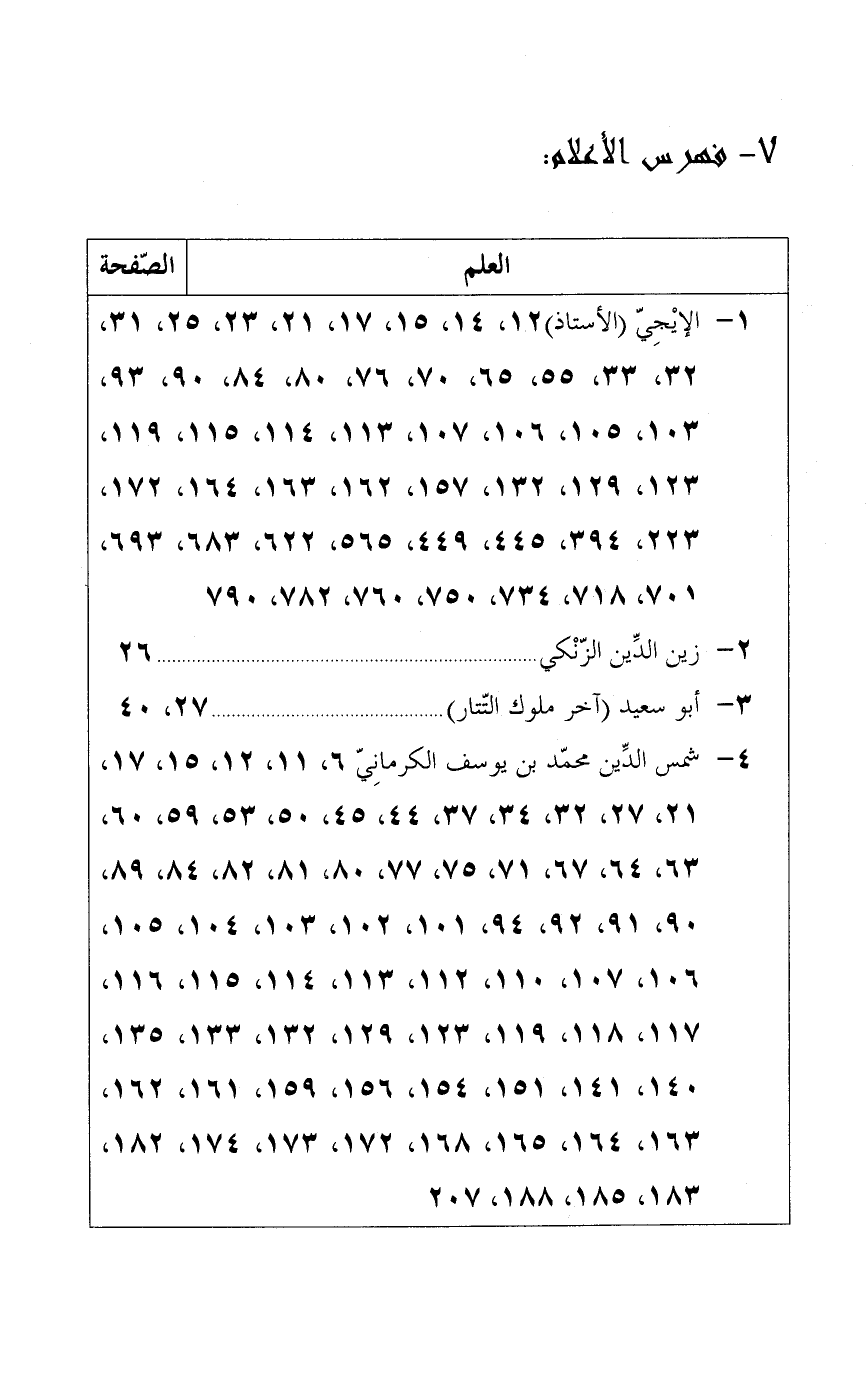 ٧- فهرس الأعلام:
العلم الصّفحة
١- الإيْجِيّ (الأستاذ) ١٢، ١٤، ١٥، ١٧، ٢١، ٢٣، ٢٥، ٣١،
٣٢، ٣٣، ٥٥، ٦٥، ٧٠، ٧٦، ٨٠، ٨٤، ٩٠، ٩٣،
١٠٣، ١٠٥، ١٠٦، ١٠٧، ١١٣، ١١٤، ١١٥، ١١٩،
١٢٣، ١٢٩، ١٣٢، ١٥٧، ١٦٢، ١٦٣، ١٦٤، ١٧٢،
٢٢٣، ٣٩٤، ٤٤٥، ٤٤٩، ٥٦٥، ٦٢٢، ٦٨٣، ٦٩٣،
٧٠١، ٧١٨، ٧٣٤، ٧٥٠، ٧٦٠، ٧٨٢، ٧٩٠
٢- زين الدِّين الزّنْكي ........ ٢٦
٣- أبو سعيد (آخر ملوك التّتار) ........ ٢٧، ٤٠
٤- شمس الدِّين محمّد بن يوسف الكرمانِيّ ٦، ١١، ١٢، ١٥، ١٧،
٢١، ٢٧، ٣٢، ٣٤، ٣٧، ٤٤، ٤٥، ٥٠، ٥٣، ٥٩، ٦٠،
٦٣، ٦٤، ٦٧، ٧١، ٧٥، ٧٧، ٨٠، ٨١، ٨٢، ٨٤، ٨٩،
٩٠، ٩١، ٩٢، ٩٤، ١٠١، ١٠٢، ١٠٣، ١٠٤، ١٠٥،
١٠٦، ١٠٧، ١١٠، ١١٢، ١١٣، ١١٤، ١١٥، ١١٦،
١١٧، ١١٨، ١١٩، ١٢٣، ١٢٩، ١٣٢، ١٣٣، ١٣٥،
١٤٠، ١٤١، ١٥١، ١٥٤، ١٥٦، ١٥٩، ١٦١، ١٦٢،
١٦٣، ١٦٤، ١٦٥، ١٦٨، ١٧٢، ١٧٣، ١٧٤، ١٨٢،
١٨٣، ١٨٥، ١٨٨، ٢٠٧